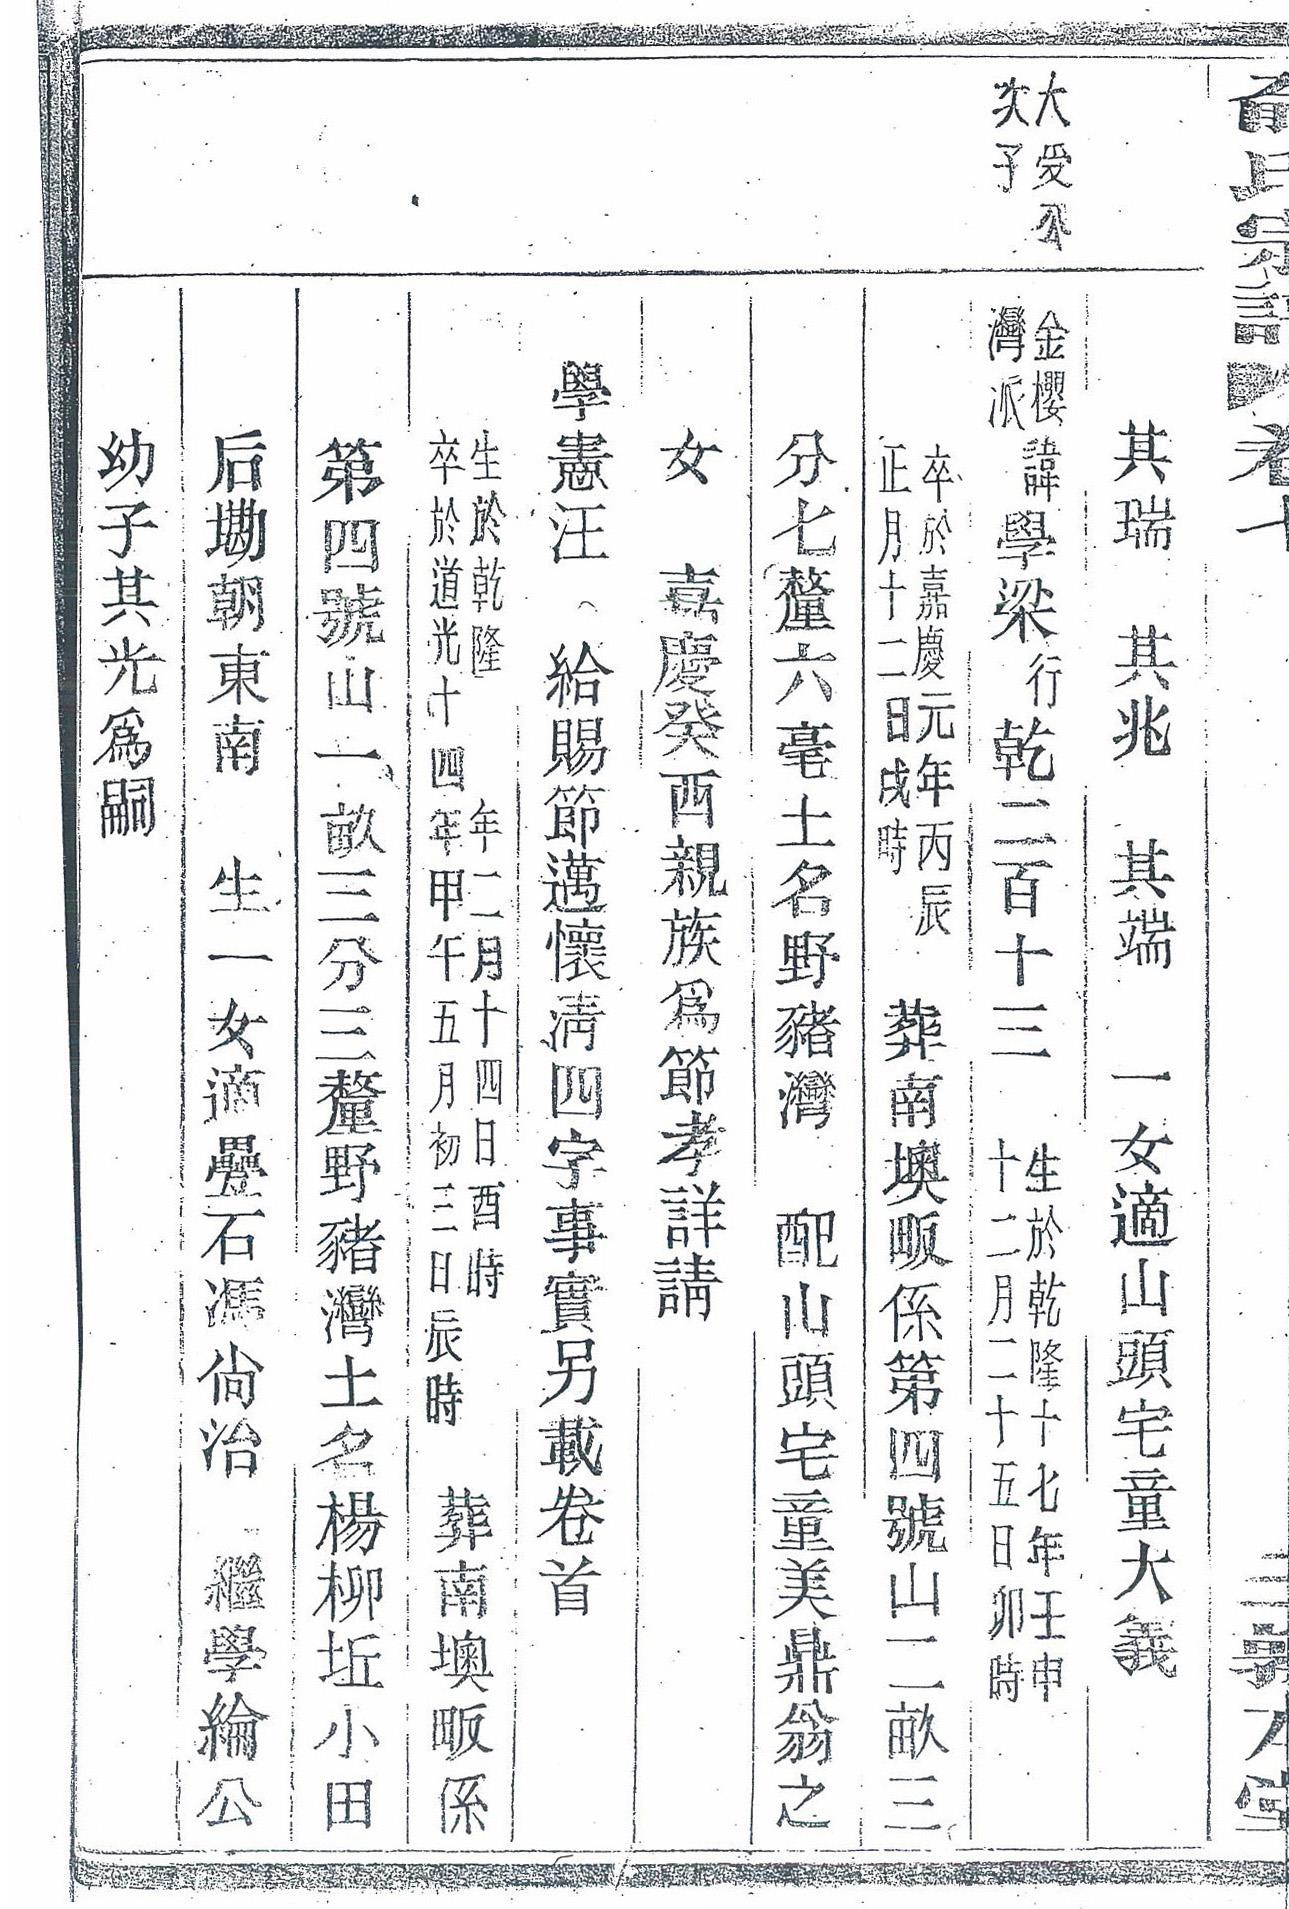 俞氏宗譜 卷十 三 義方堂
其瑞 其兆 其端 一女適山頭宅童大義
大受公
次子
金櫻
灣派
諱學梁行乾二百十三
生於乾隆十七年壬申
十二月二十五日卯時
卒於嘉慶元年丙辰
正月十二日戌時
葬南墺畈係第四號山二畝三
分七釐六毫土名野豬灣 配山頭宅童美鼎翁之
女 嘉慶癸酉親族爲節孝詳請
學憲汪 給賜節邁懷清四字事實另載卷首
生於乾隆 年二月十四日酉時
卒於道光十四年甲午五月初三日辰時
葬南墺畈係
第四號山一畝三分三釐野豬灣土名楊柳坵小田
后墈朝東南 生一女適疊石馮尙治 繼學綸公
幼子其光爲嗣